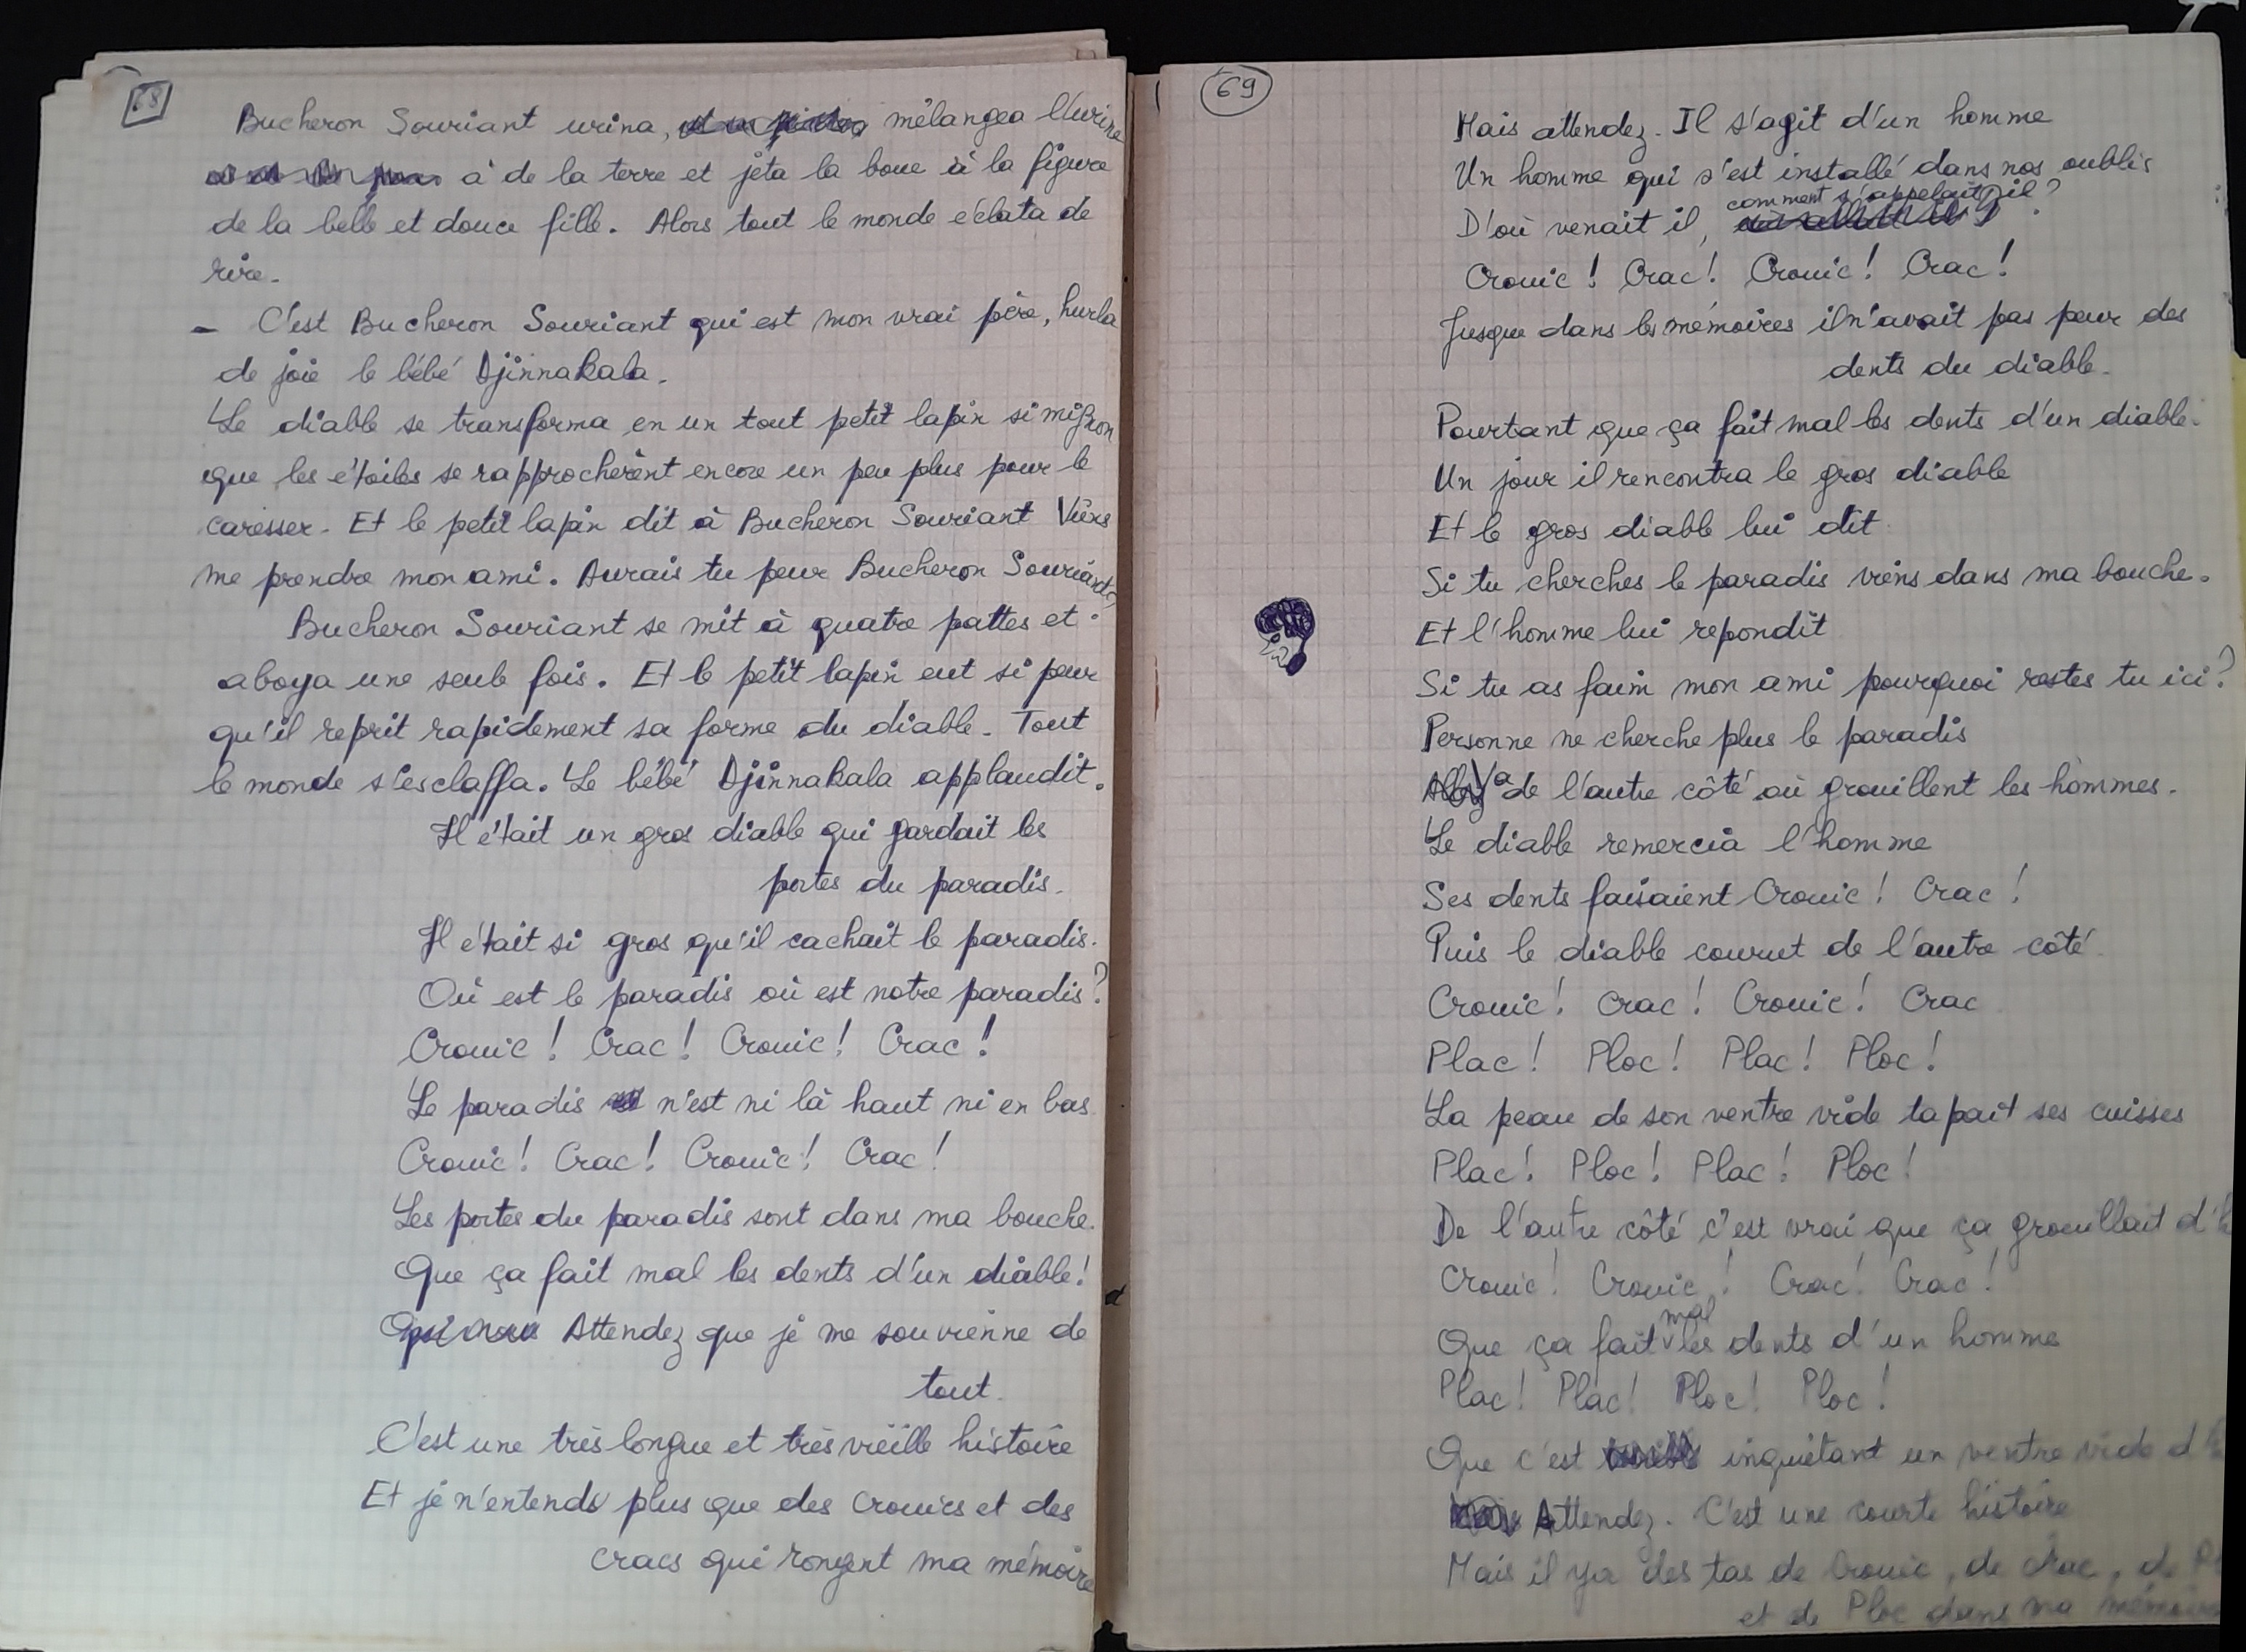 68
Bucheron Souriant urina, mélangea l'urine
à de la terre et jeta la boue à la figure
de la belle et douce fille. Alors tout le monde éclata de
rire.
– C'est Bucheron Souriant qui est mon vrai père, hurla
de joie le bébé Djinnakala.
Le diable se transforma en un tout petit lapin si mignon
que les étoiles se rapprochèrent encore un peu plus pour le
caresser. Et le petit lapin dit à Bucheron Souriant Viens
me prendre mon ami. Aurais tu peur Bucheron Souriant?
Bucheron Souriant se mit à quatre pattes et
aboya une seule fois. Et le petit lapin eut si peur
qu'il reprit rapidement sa forme du diable. Tout
le monde s'esclaffa. Le bébé Djinnakala applaudit.
Il était un gros diable qui gardait les
portes du paradis.
Il était si gros qu'il cachait le paradis.
Où est le paradis où est notre paradis?
Crouic! Crac! Crouic! Crac!
Le paradis n'est ni là haut ni en bas
Crouic! Crac! Crouic! Crac!
Les portes du paradis sont dans ma bouche.
Que ça fait mal les dents d'un diable!
Attendez que je me souvienne de
tout.
C'est une très longue et très vieille histoire
Et je n'entends plus que des crouics et des
cracs qui rongent ma mémoire
69
Mais attendez. Il s'agit d'un homme
Un homme qui s'est installé dans nos oublis
D'où venait il, comment s'appelait il?
Crouic! Crac! Crouic! Crac!
Jusque dans les mémoires il n'avait pas peur des
dents du diable.
Pourtant que ça fait mal les dents d'un diable.
Un jour il rencontra le gros diable
Et le gros diable lui dit
Si tu cherches le paradis viens dans ma bouche.
Et l'homme lui repondit
Si tu as faim mon ami pourquoi restes tu ici?
Personne ne cherche plus le paradis
Va de l'autre côté où grouillent les hommes.
Le diable remercia l'homme
Ses dents faisaient Crouic! Crac!
Puis le diable courut de l'autre côté.
Crouic! Crac! Crouic! Crac
Plac! Ploc! Plac! Ploc!
La peau de son ventre vide tapait ses cuisses
Plac! Ploc! Plac! Ploc!
De l'autre côté c'est vrai que ça grouillait d'h
Crouic! Crouic! Crac! Crac!
Que ça fait mal les dents d'un homme
Plac! Plac! Ploc! Ploc!
Que c'est inquiétant un ventre vide
Attendez. C'est une courte histoire
Mais il y a des tas de Crouic, de crac, de
et de Ploc dans ma mémoire